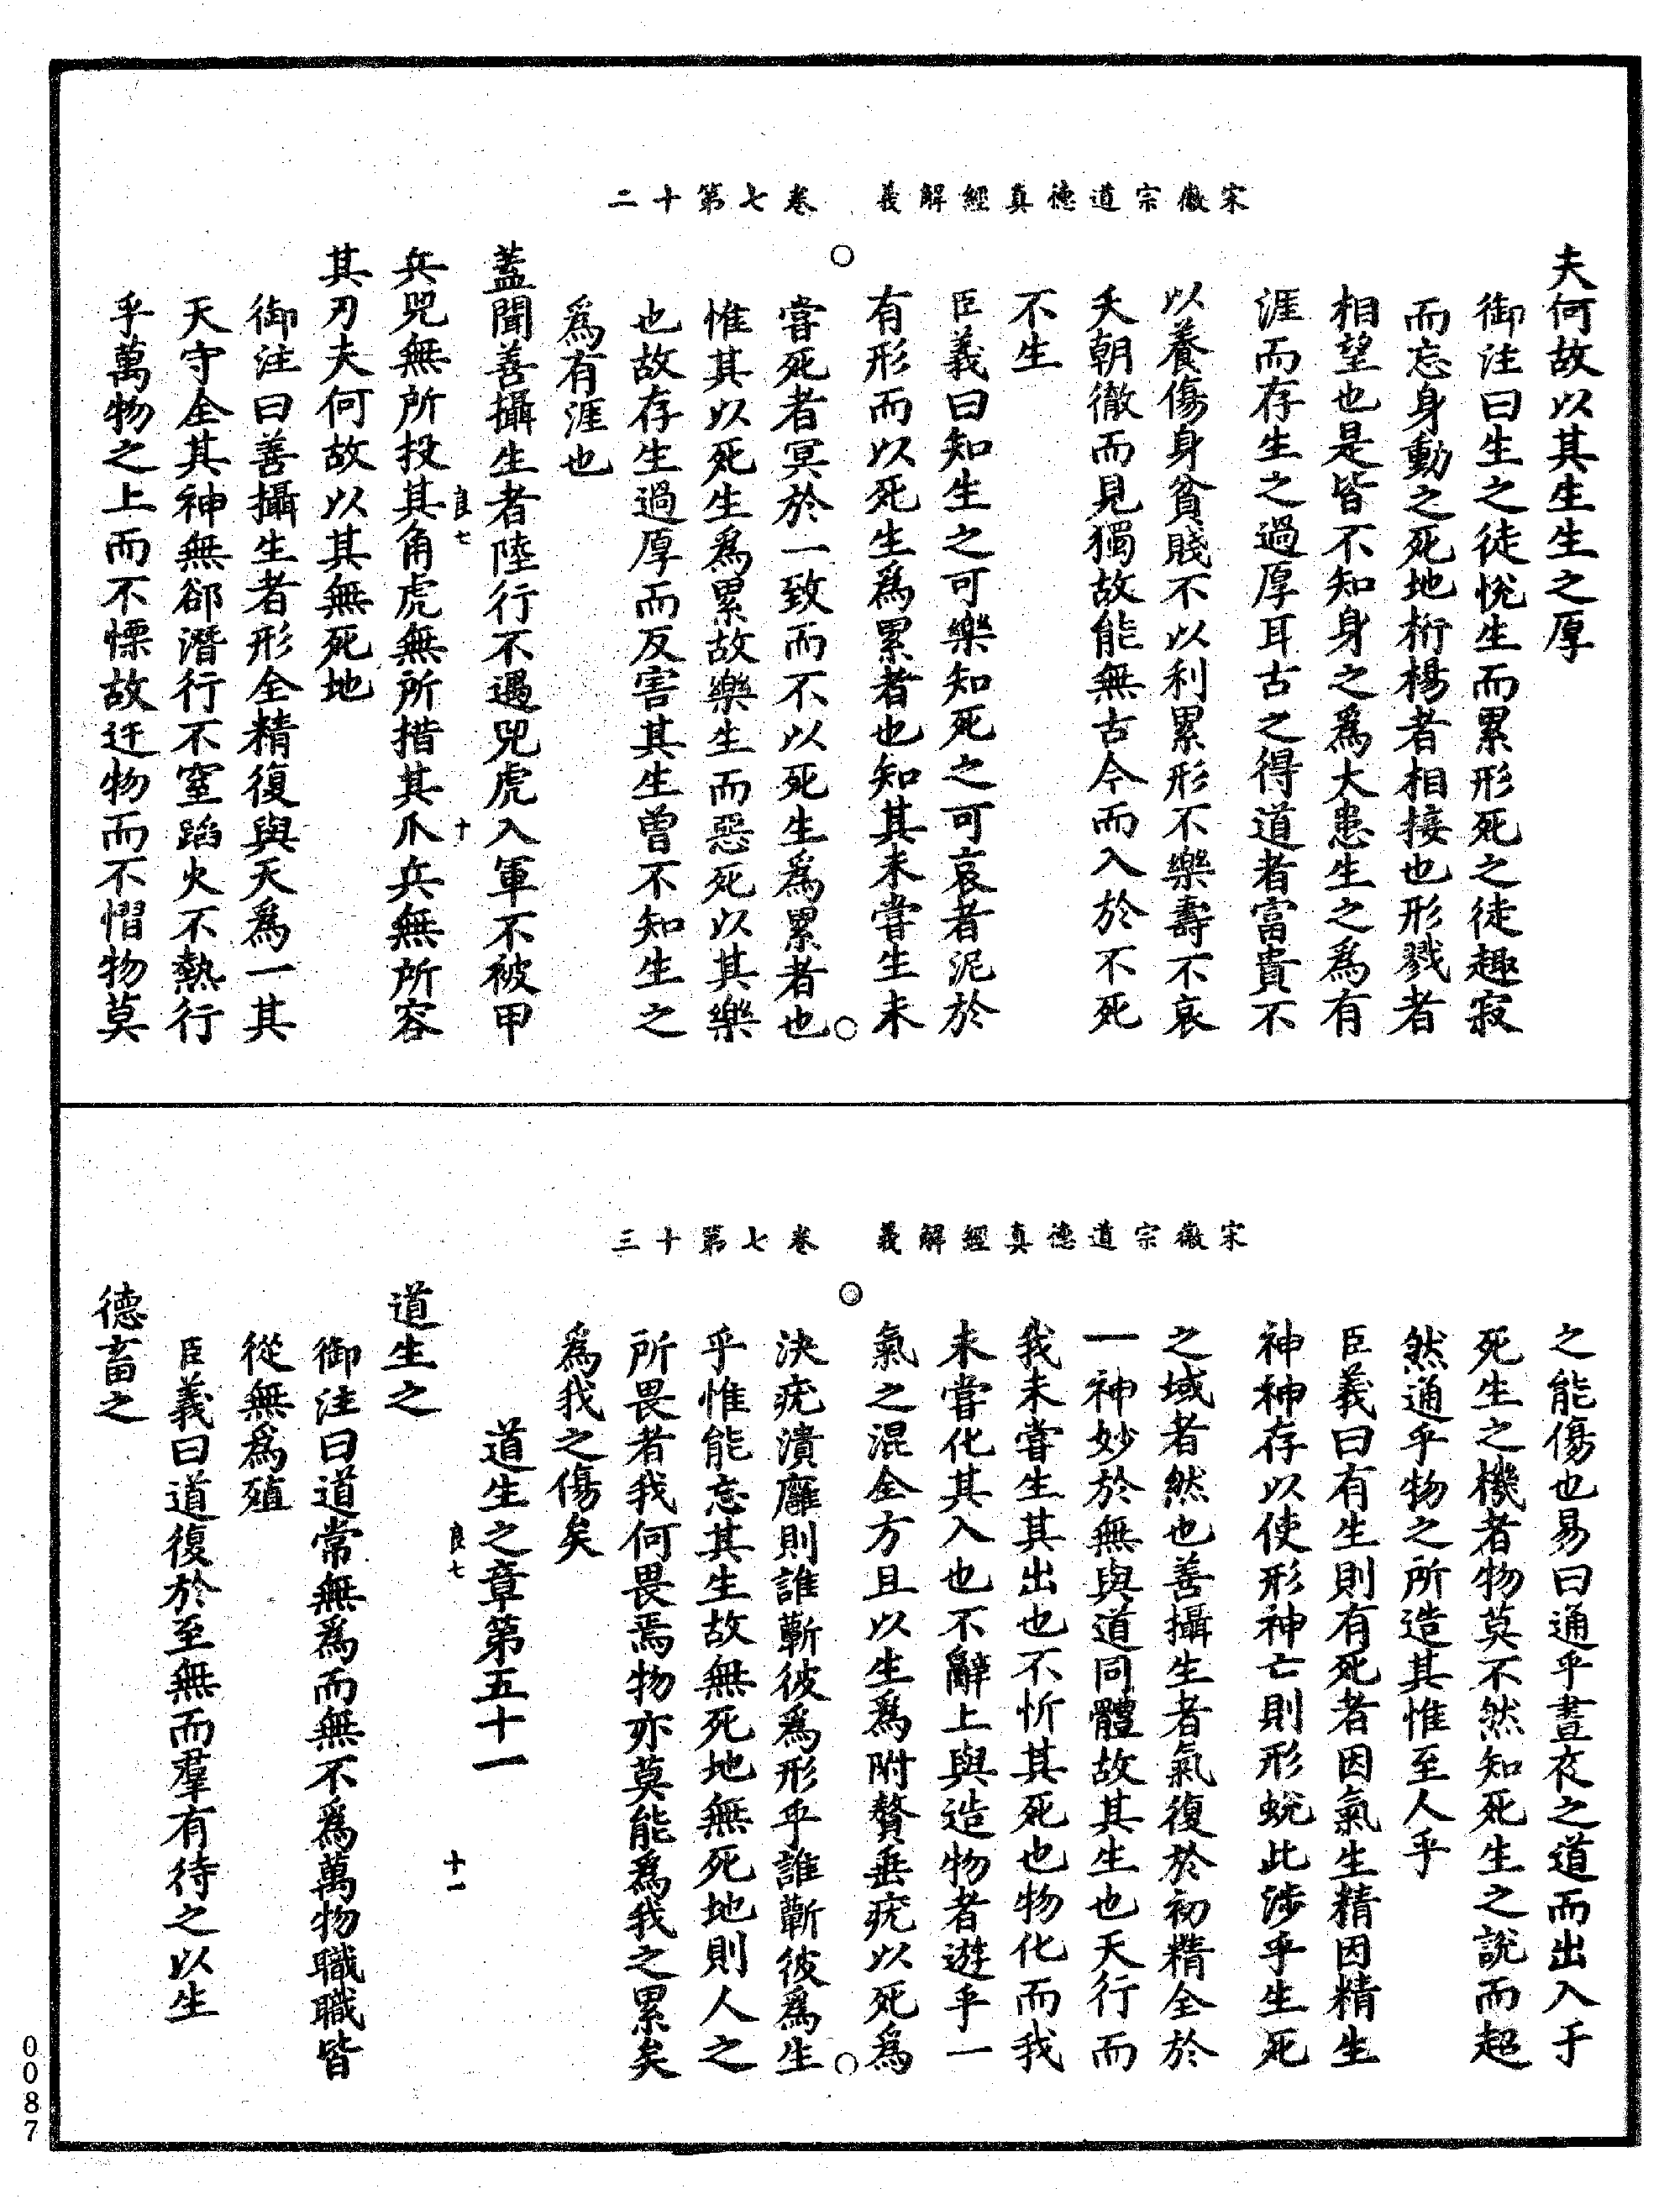 宋徽宗道德真經解義　卷七第十二
夫何故以其生生之厚
御注曰生之徒悅生而累形死之徒趣寂
而忘身動之死地桁楊者相接也形戮者
相望也是皆不知身之爲大患生之爲有
涯而存生之過厚耳古之得道者富貴不
以養傷身貧賤不以利累形不樂壽不哀
夭朝徹而見獨故能無古今而入於不死
不生
臣義曰知生之可樂知死之可哀者泥於
有形而以死生爲累者也知其未嘗生未
嘗死者冥於一致而不以死生爲累者也
惟其以死生爲累故樂生而惡死以其樂
也故存生過厚而反害其生曾不知生之
爲有涯也
蓋聞善攝生者陸行不遇兕虎入軍不被甲
良七　十
兵兕無所投其角虎無所措其爪兵無所容
其刃夫何故以其無死地
御注曰善攝生者形全精復與天爲一其
天守全其神無郤潛行不窒蹈火不熱行
乎萬物之上而不慄故迕物而不慴物莫
宋徽宗道德真經解義　卷七第十三
之能傷也易曰通乎晝夜之道而出入于
死生之機者物莫不然知死生之說而超
然通乎物之所造其惟至人乎
臣義曰有生則有死者因氣生精因精生
神神存以使形神亡則形蛻此涉乎生死
之域者然也善攝生者氣復於初精全於
一神妙於無與道同體故其生也天行而
我未嘗生其出也不忻其死也物化而我
未嘗化其入也不辭上與造物者遊乎一
氣之混全方且以生爲附贅垂疣以死爲
決疣潰癰則誰蘄彼爲形乎誰蘄彼爲生
乎惟能忘其生故無死地無死地則人之
所畏者我何畏焉物亦莫能爲我之累矣
爲我之傷矣
道生之章第五十一
良七　十一
道生之
御注曰道常無爲而無不爲萬物職職皆
從無爲殖
臣義曰道復於至無而羣有待之以生
德畜之
0087